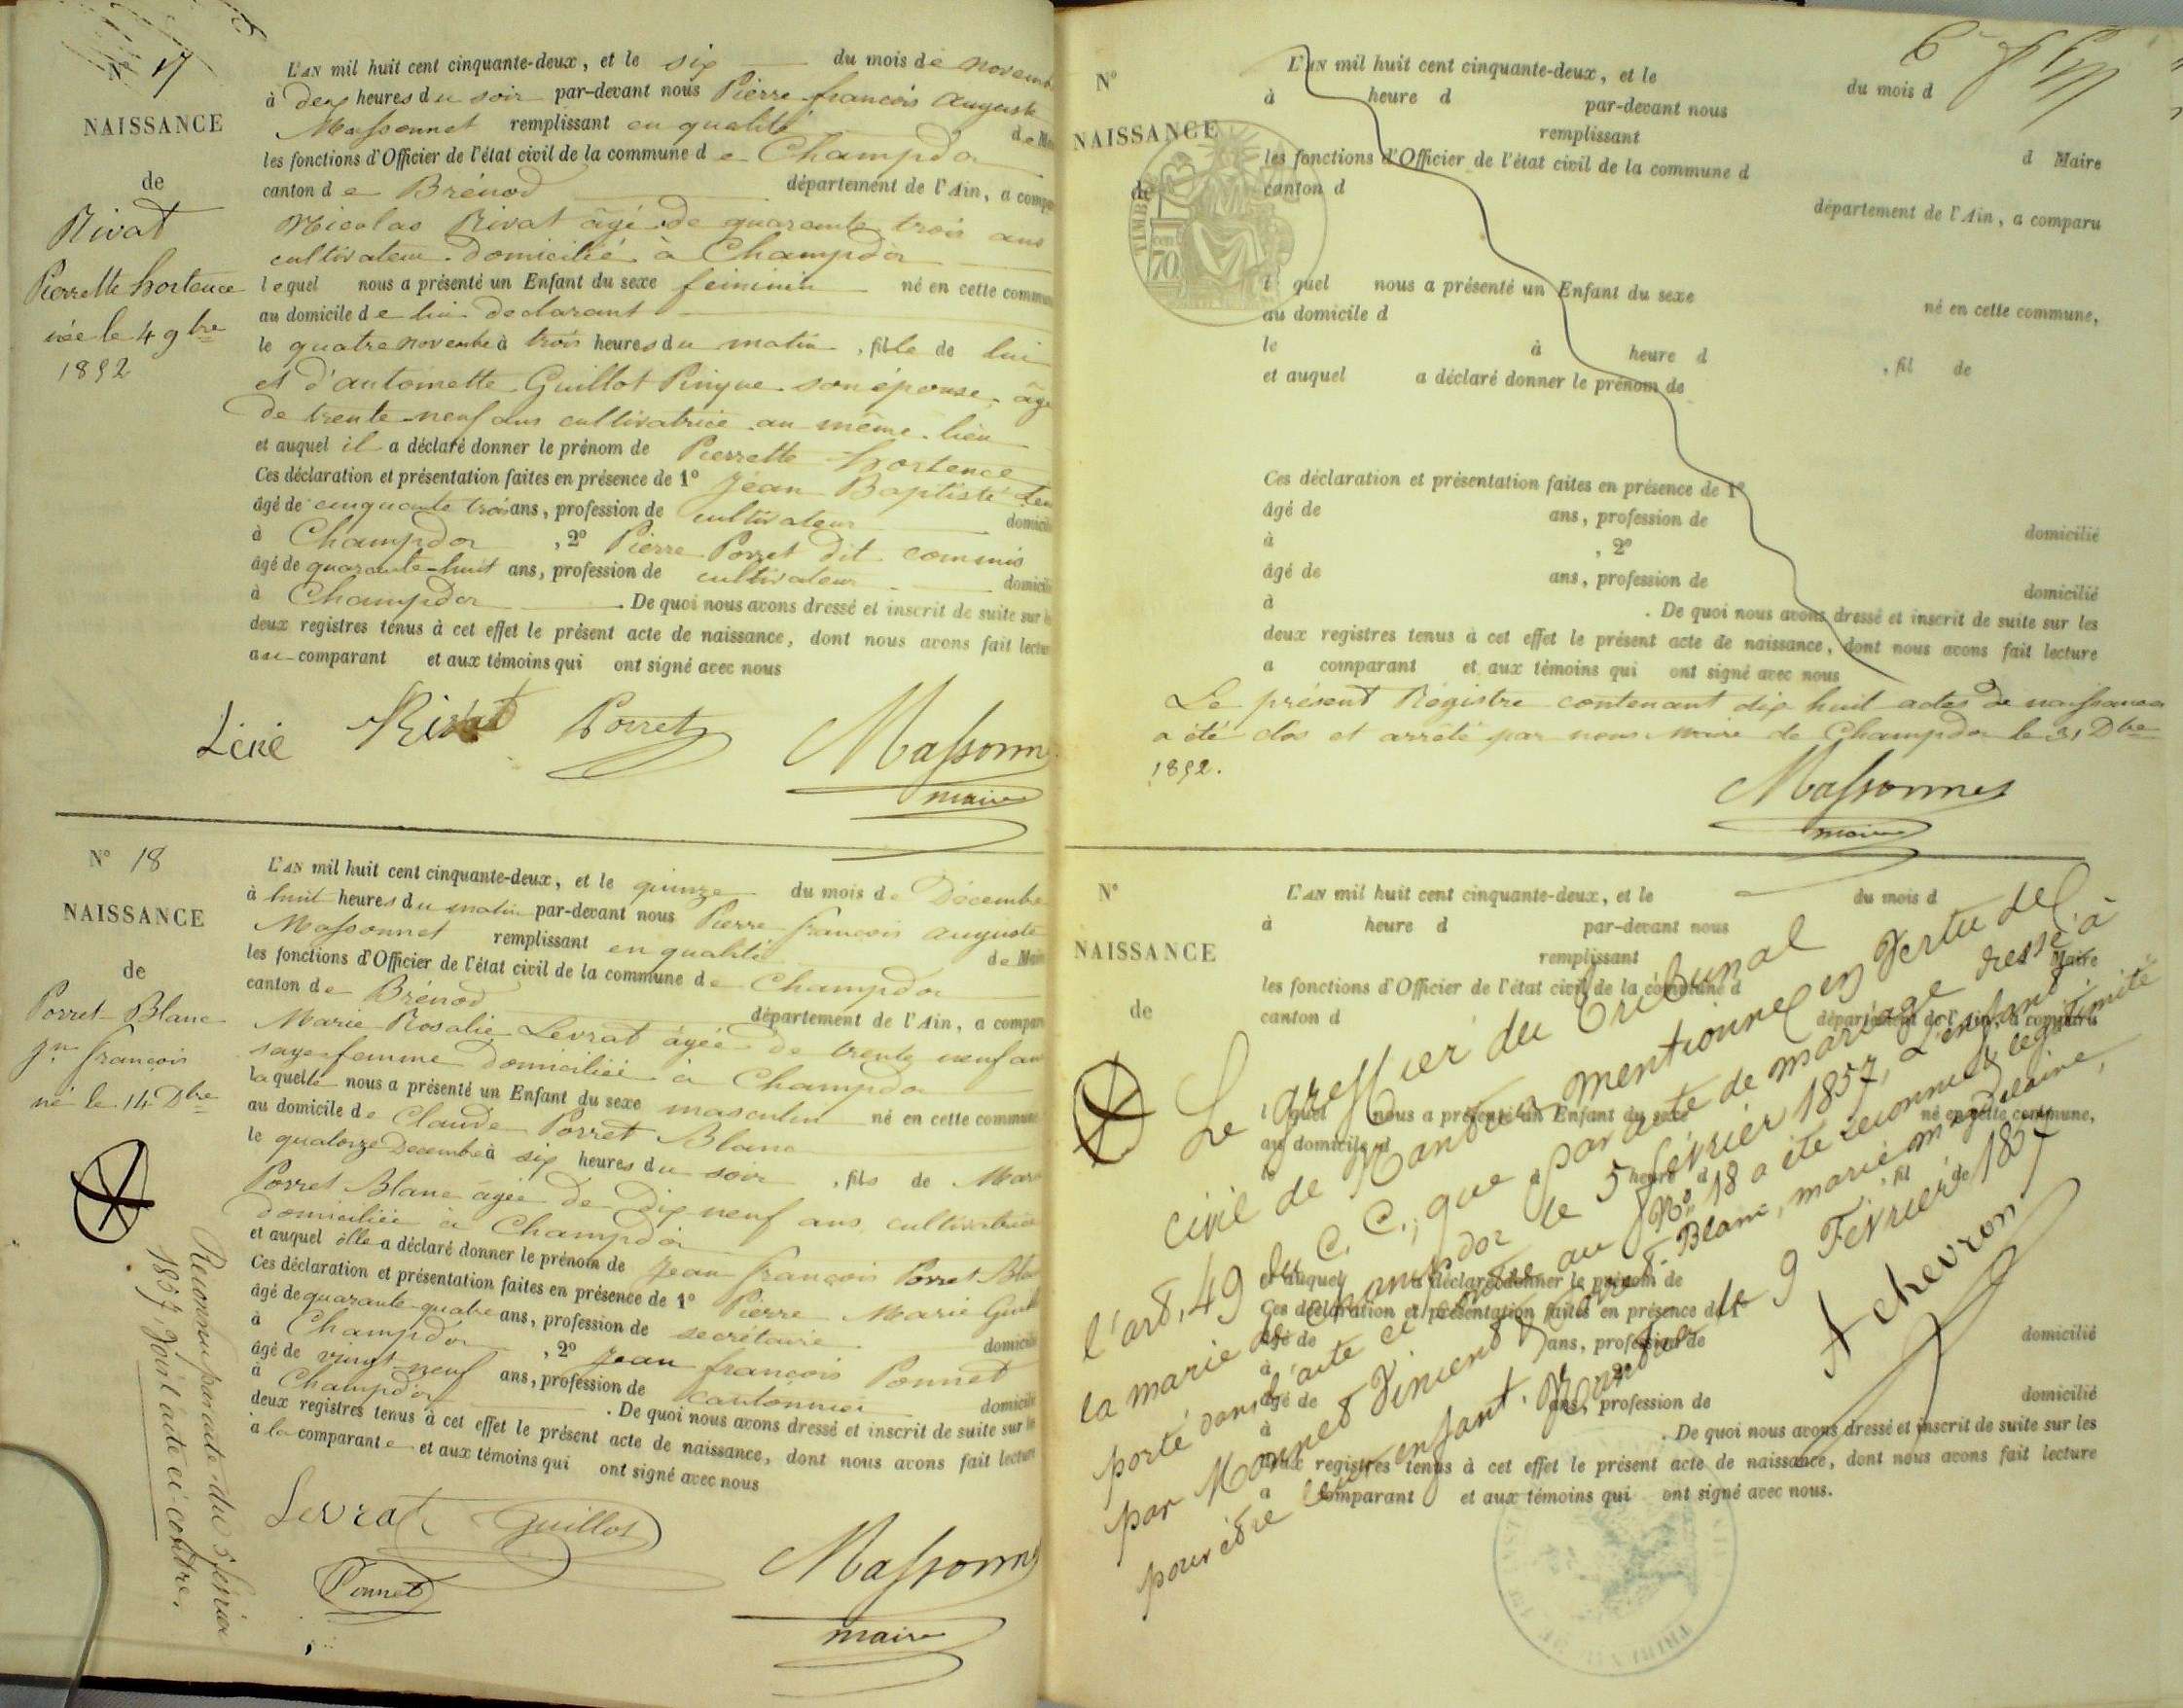 N° 17
NAISSANCE
de
Rivat
Pierrette hortence
née le 4 9bre
1852
L'AN mil huit cent cinquante-deux, et le six du mois de novem
à deux heures du soir par-devant nous Pierre françois Auguste
Massonnet remplissant en qualité de M
les fonctions d'Officier de l'état civil de la commune de Champdor
canton de Brénod département de l'Ain, a compa
Nicolas Rivat âgé de quarante trois ans
cultivateur domicilié à Champdor
lequel nous a présenté un Enfant du sexe feminin né en cette commun
au domicile de lui declarant
le quatre novembre à trois heures du matin, fille de lui
et d'antoinette Guillot Pingue son épouse, âg
de trente-neuf ans cultivatrice au même lieu
et auquel il a déclaré donner le prénom de Pierrette hortence
Ces déclaration et présentation faites en présence de 1° Jean Baptiste
âgé de cinquante trois ans, profession de cultivateur domicil
à Champdor, 2° Pierre Porret dit commis
âgé de quarante-huit ans, profession de cultivateur domicili
à Champdor. De quoi nous avons dressé et inscrit de suite sur l
deux registres tenus à cet effet le présent acte de naissance, dont nous avons fait lectur
au comparant et aux témoins qui ont signé avec nous
Rivat Porret Massonn
maire
N° 18
NAISSANCE
de
Porret Blanc
jn françois
né le 14 Dbre
Reconnu par acte du 5 fevrier
1857, voir l'acte ci-contre.
L'AN mil huit cent cinquante-deux, et le quinze du mois de Décembre
à huit heures du matin par-devant nous Pierre françois auguste
Massonnet remplissant en qualité de Mai
les fonctions d'Officier de l'état civil de la commune de Champdor
canton de Brénod département de l'Ain, a compar
Marie Rosalie Levrat âgée de trente neuf an
sage-femme domiciliée à Champdor
laquelle nous a présenté un Enfant du sexe masculin né en cette commune
au domicile de Claude Porret Blanc
le quatorze Decembre à six heures du soir, fils de Mar
Porret Blanc âgée de Dix neuf ans cultivatrice
domiciliée à Champdor
et auquel elle a déclaré donner le prénom de Jean françois Porret Bla
Ces déclaration et présentation faites en présence de 1° Pierre Marie Guil
âgé de quarante-quatre ans, profession de secrétaire domicili
à Champdor, 2° Jean françois Ponnet
âgé de vingt neuf ans, profession de cantonnier domicili
à Champdor. De quoi nous avons dressé et inscrit de suite sur les
deux registres tenus à cet effet le présent acte de naissance, dont nous avons fait lecture
a la comparante et aux témoins qui ont signé avec nous
Levrat Guillot
Ponnet Massonn
maire
N°
NAISSANCE
de
TIMBRE
70
L'AN mil huit cent cinquante-deux, et le du mois d
à heure d par-devant nous
remplissant d Maire
les fonctions d'Officier de l'état civil de la commune d
canton d département de l'Ain, a comparu
l quel nous a présenté un Enfant du sexe né en cette commune,
au domicile d
le à heure d, fil de
et auquel a déclaré donner le prénom de
Ces déclaration et présentation faites en présence de 1°
âgé de ans, profession de domicilié
à , 2°
âgé de ans, profession de domicilié
à . De quoi nous avons dressé et inscrit de suite sur les
deux registres tenus à cet effet le présent acte de naissance, dont nous avons fait lecture
a comparant et aux témoins qui ont signé avec nous
Le présent Registre contenant dix huit actes de naissances
a été clos et arrêté par nous Maire de Champdor le 31 Dbre
1852.
Massonnet
maire
N°
NAISSANCE
de
L'AN mil huit cent cinquante-deux, et le du mois d
à heure d par-devant nous
remplissant Maire
les fonctions d'Officier de l'état civil de la commune d
canton d département de l'Ain, a comparu
l quel nous a présenté un Enfant du sexe né en cette commune,
au domicile d
le à heure d, fil de
et auquel a déclaré donner le prénom de
Ces déclaration et présentation faites en présence de 1°
âgé de ans, profession de domicilié
à
âgé de ans, profession de domicilié
à . De quoi nous avons dressé et inscrit de suite sur les
deux registres tenus à cet effet le présent acte de naissance, dont nous avons fait lecture
a comparant et aux témoins qui ont signé avec nous.
Le greffier du Tribunal
civil de Nantua mentionne en vertu de
l'art. 49 du C. C., que par acte de mariage dressé à
la mairie de Champdor le 5 février 1857, l'enfant
porté dans l'acte ci contre au N° 18 a été reconnu & légitimité
par Monnet Vincent & Porret-Blanc, marie magdelaine,
pour être leur enfant. Nantua le 9 Février 1857
A chevron